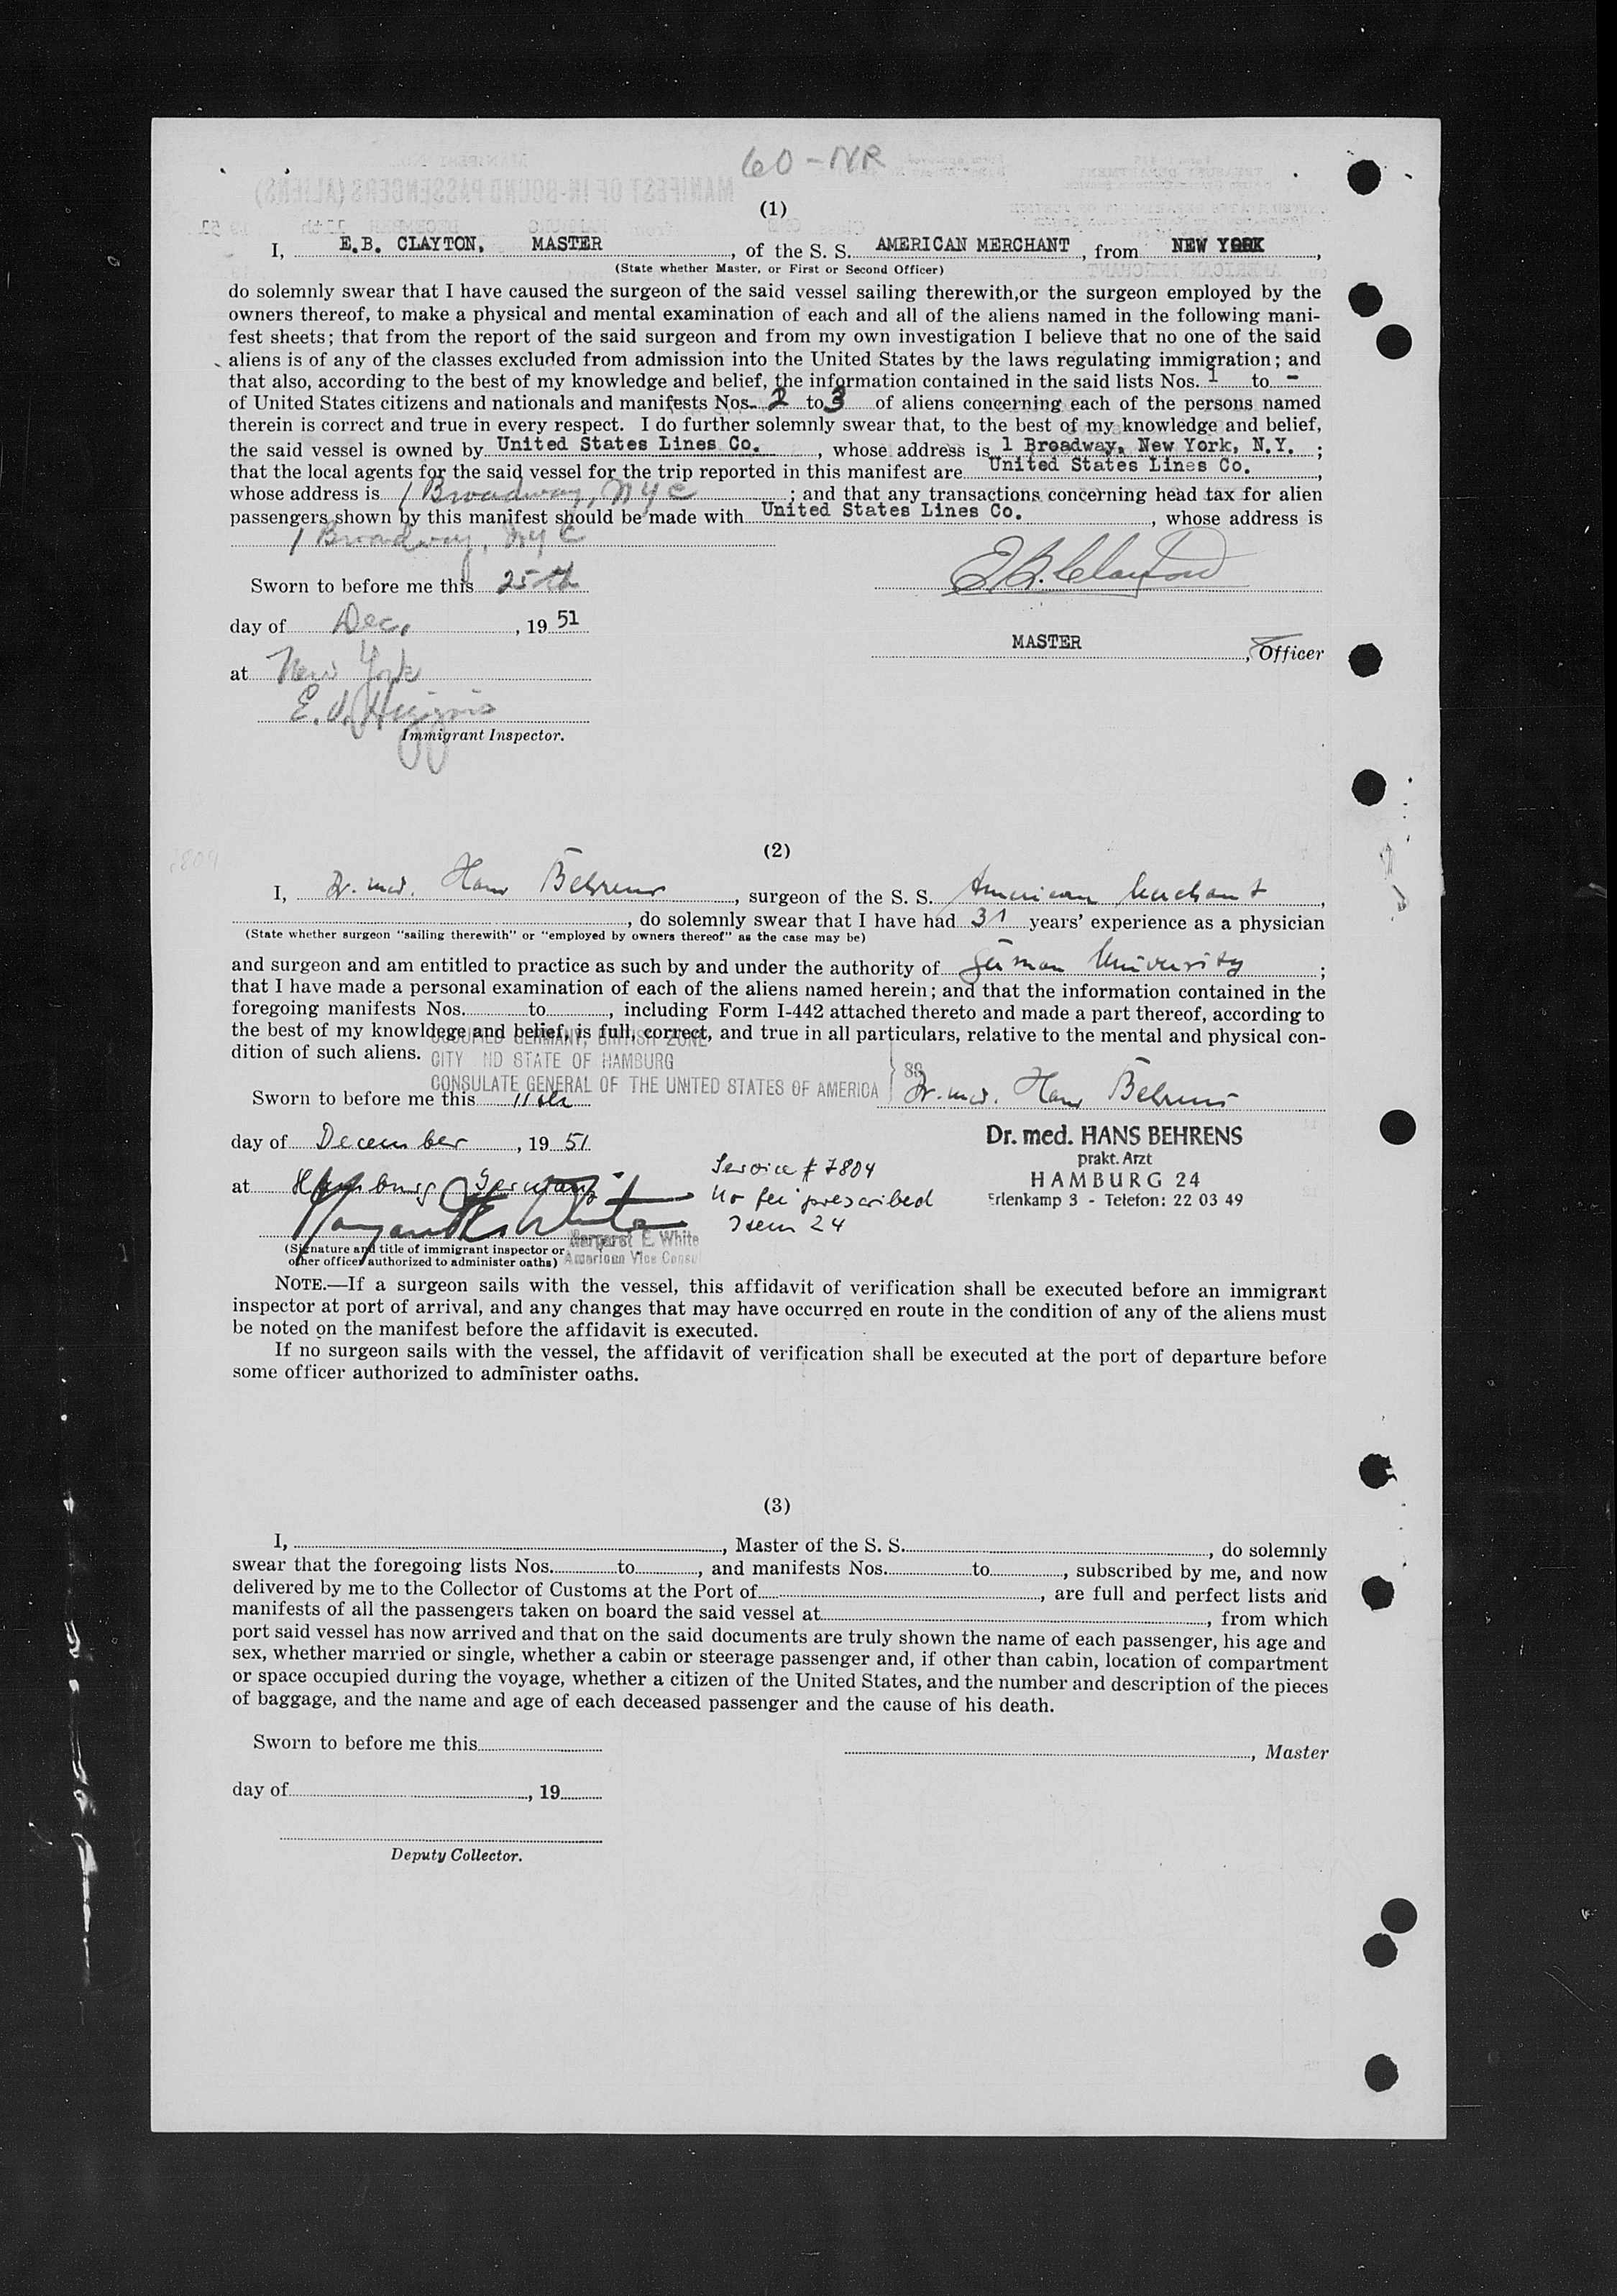 60-NR
(1)
I, E.B. CLAYTON, MASTER, of the S. S. AMERICAN MERCHANT, from NEW YORK,
(State whether Master, or First or Second Officer)
do solemnly swear that I have caused the surgeon of the said vessel sailing therewith, or the surgeon employed by the
owners thereof, to make a physical and mental examination of each and all of the aliens named in the following mani-
fest sheets; that from the report of the said surgeon and from my own investigation I believe that no one of the said
aliens is of any of the classes excluded from admission into the United States by the laws regulating immigration; and
that also, according to the best of my knowledge and belief, the information contained in the said lists Nos. 1 to -
of United States citizens and nationals and manifests Nos. 2 to 3 of aliens concerning each of the persons named
therein is correct and true in every respect. I do further solemnly swear that, to the best of my knowledge and belief,
the said vessel is owned by United States Lines Co., whose address is 1 Broadway, New York, N.Y.;
that the local agents for the said vessel for the trip reported in this manifest are United States Lines Co.,
whose address is 1 Broadway, NYC; and that any transactions concerning head tax for alien
passengers shown by this manifest should be made with United States Lines Co., whose address is
1 Broadway, NYC
E.B. Clayton
Sworn to before me this 25th
day of Dec., 19 51
MASTER, Officer
at New York
E. J. Higgins
Immigrant Inspector.
(2)
I, Dr. med. Hans Behrens, surgeon of the S. S. American Merchant,
, do solemnly swear that I have had 31 years' experience as a physician
(State whether surgeon "sailing therewith" or "employed by owners thereof" as the case may be)
and surgeon and am entitled to practice as such by and under the authority of German University;
that I have made a personal examination of each of the aliens named herein; and that the information contained in the
foregoing manifests Nos. to , including Form I-442 attached thereto and made a part thereof, according to
the best of my knowldege and belief, is full, correct, and true in all particulars, relative to the mental and physical con-
dition of such aliens.
OCCUPIED GERMANY, BRITISH ZONE
CITY ND STATE OF HAMBURG
CONSULATE GENERAL OF THE UNITED STATES OF AMERICA
SS
Sworn to before me this 11th
Dr. med. Hans Behrens
day of December, 19 51
Dr. med. HANS BEHRENS
prakt. Arzt
HAMBURG 24
Erlenkamp 3 - Telefon: 22 03 49
at Hamburg Germany
Service # 7804
No fee prescribed
Item 24
Margaret E. White
Margaret E. White
American Vice Consul
(Signature and title of immigrant inspector or
other officer authorized to administer oaths)
NOTE.—If a surgeon sails with the vessel, this affidavit of verification shall be executed before an immigrant
inspector at port of arrival, and any changes that may have occurred en route in the condition of any of the aliens must
be noted on the manifest before the affidavit is executed.
If no surgeon sails with the vessel, the affidavit of verification shall be executed at the port of departure before
some officer authorized to administer oaths.
(3)
I, , Master of the S. S. , do solemnly
swear that the foregoing lists Nos. to , and manifests Nos. to , subscribed by me, and now
delivered by me to the Collector of Customs at the Port of , are full and perfect lists and
manifests of all the passengers taken on board the said vessel at , from which
port said vessel has now arrived and that on the said documents are truly shown the name of each passenger, his age and
sex, whether married or single, whether a cabin or steerage passenger and, if other than cabin, location of compartment
or space occupied during the voyage, whether a citizen of the United States, and the number and description of the pieces
of baggage, and the name and age of each deceased passenger and the cause of his death.
Sworn to before me this
, Master
day of , 19
Deputy Collector.